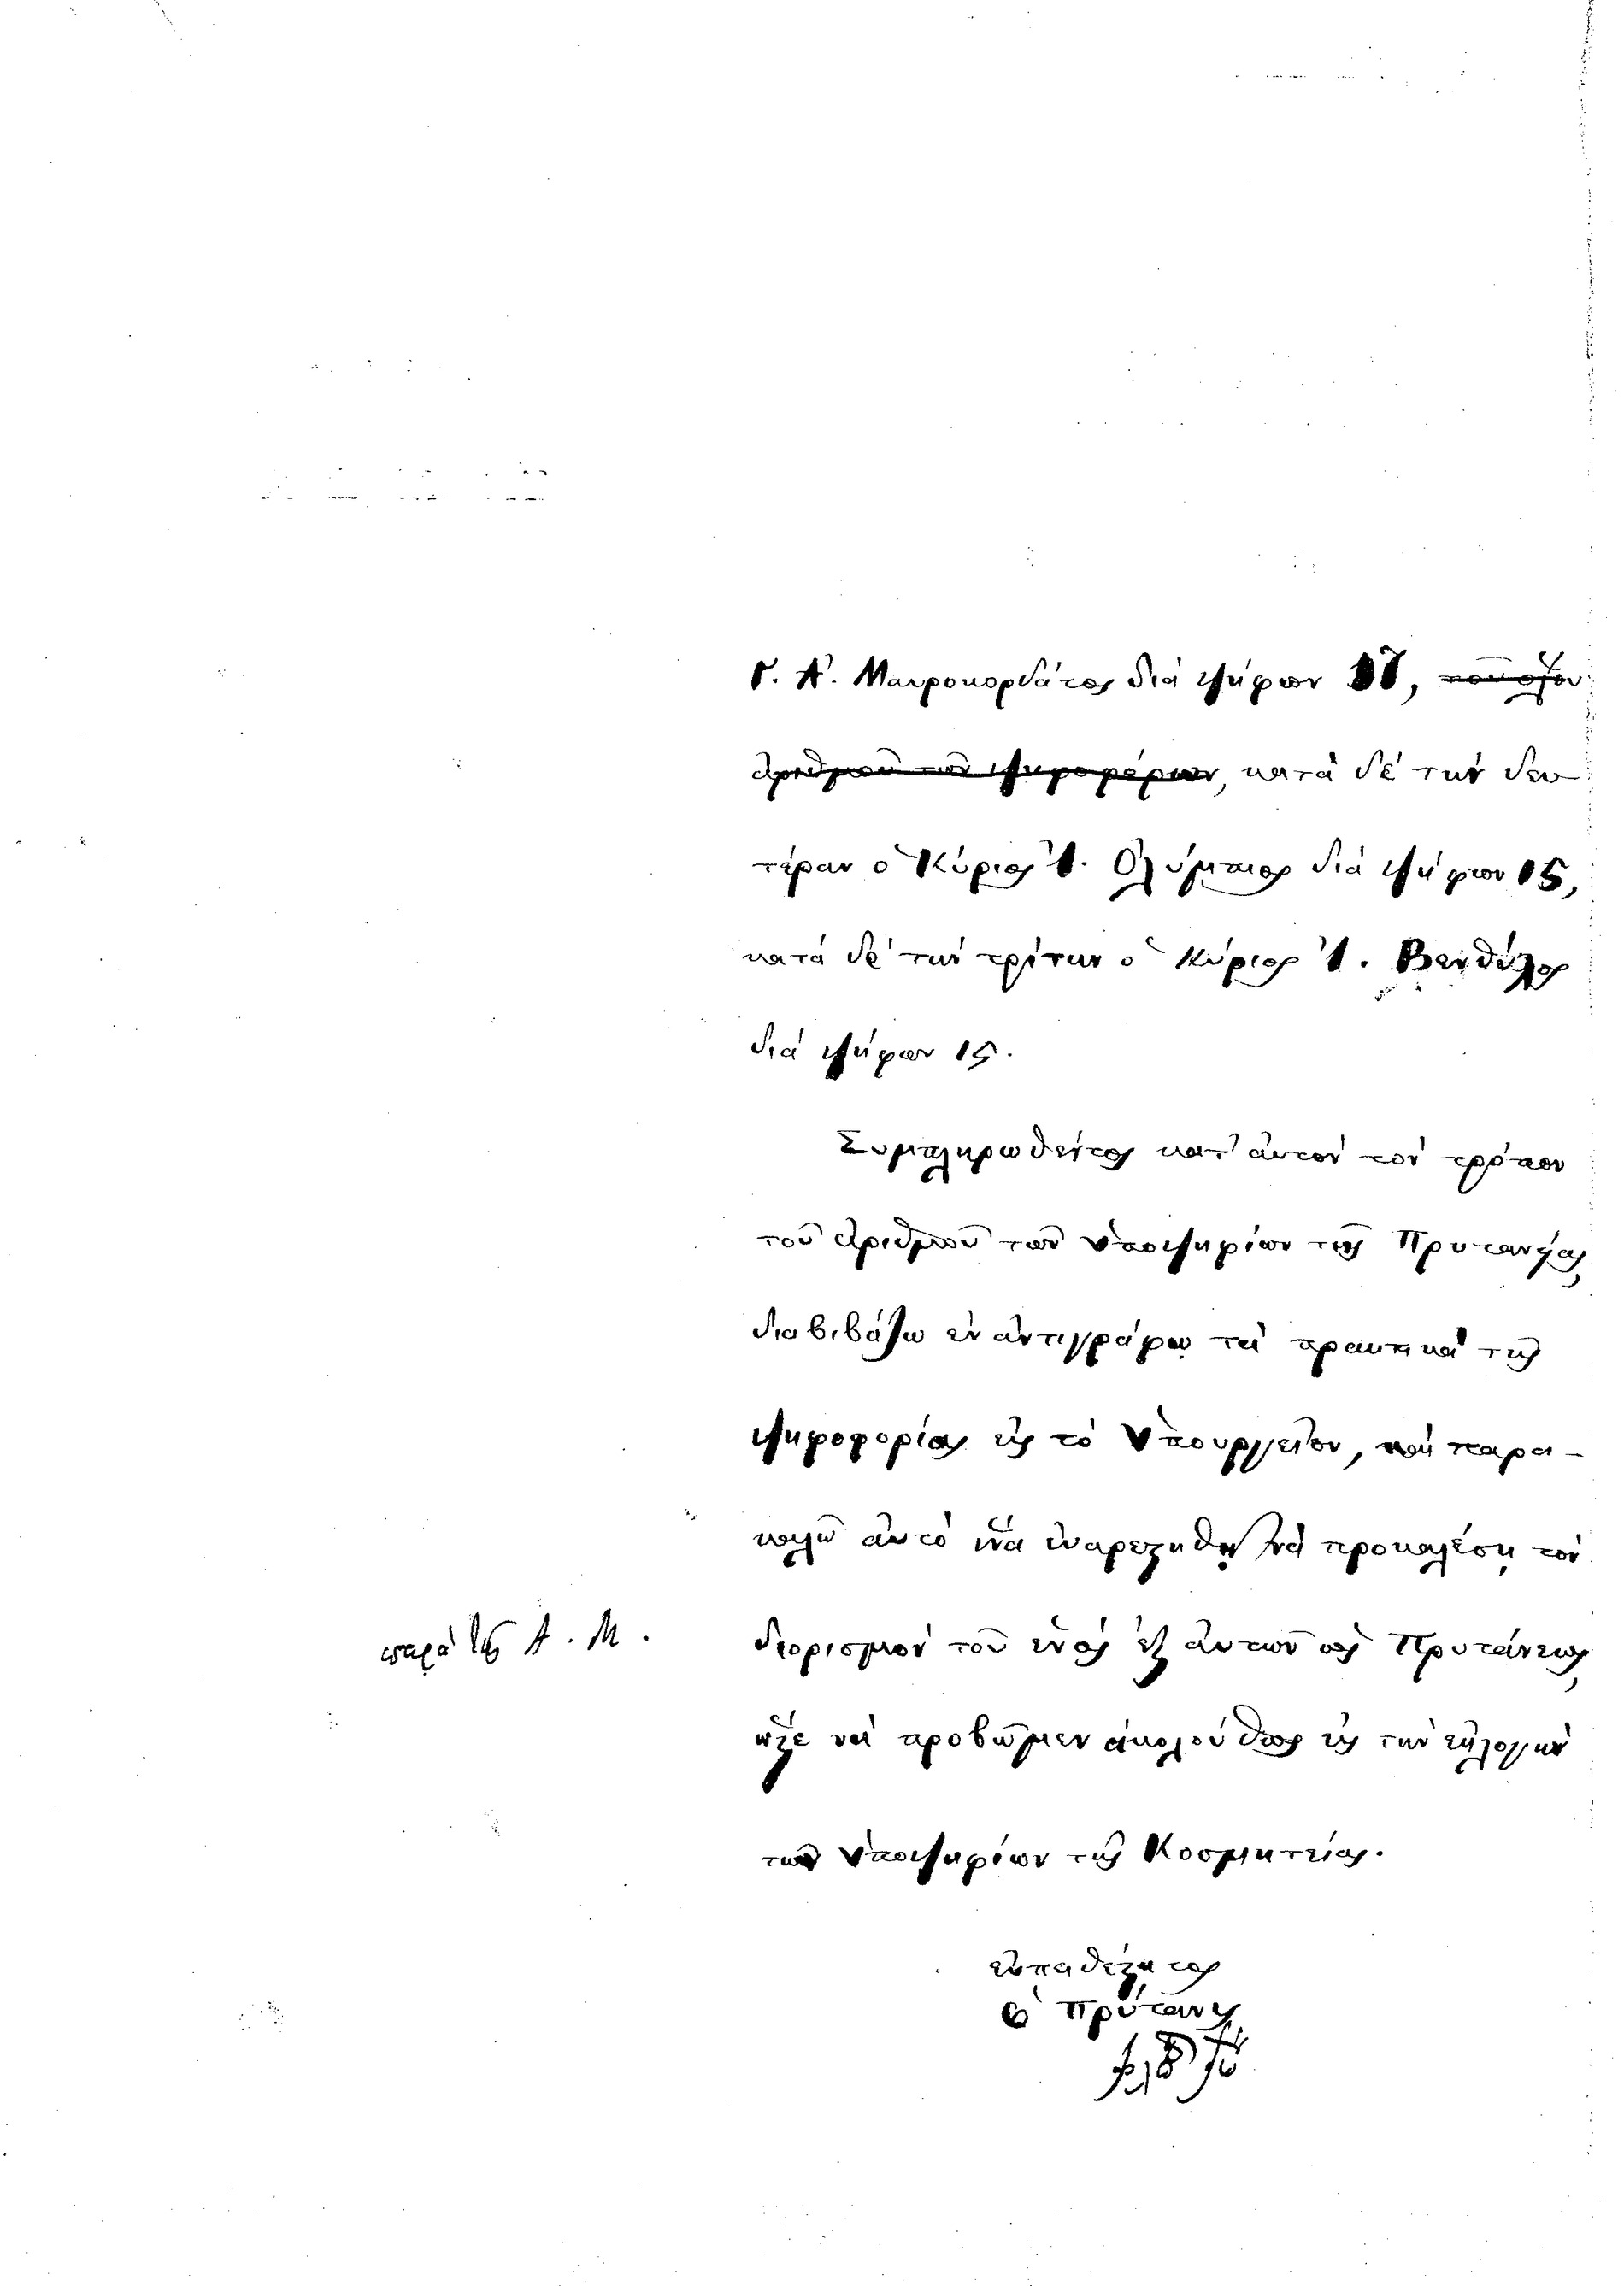 Γ. Α. Μαυροκορδάτος διὰ ψήφων
ἀριθμοῦ τῶν ψηφοφόρων, κατὰ δὲ τὴν δευ-
τέραν ὁ Κύριος Ι. Ὀλύμπιος διὰ ψήφων 15,
κατὰ δὲ τὴν τρίτην ὁ Κύριος Ι. Βενθύλος
διὰ ψήφων 15.
Συμπληρωθέντος κατ' αὐτὸν τὸν τρόπον
τοῦ ἀριθμοῦ τῶν ὑποψηφίων τῆς Πρυτανείας,
διαβιβάζω ἐν ἀντιγράφῳ τὰ πρακτικὰ τῆς
ψηφοφορίας εἰς τὸ Ὑπουργεῖον, καὶ παρα-
καλῶ αὐτὸ νὰ εὐαρεστηθῇ νὰ προκαλέσῃ τὸν
παρὰ τῆς Α. Μ.
διορισμὸν τοῦ ἑνὸς ἐξ αὐτῶν ὡς Πρυτάνεως,
ὥστε νὰ προβῶμεν ἀκολούθως εἰς τὴν ἐκλογὴν
τῶν ὑποψηφίων τῆς Κοσμητείας.
εὐπειθέστατος
ὁ Πρύτανις